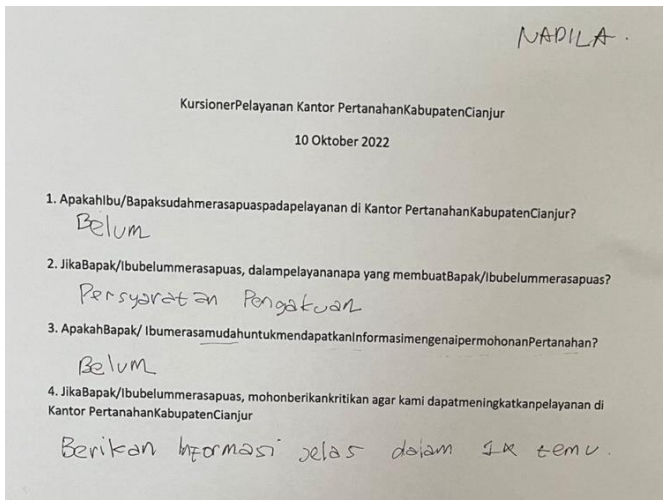 NADILA.
KursionerPelayanan Kantor PertanahanKabupatenCianjur
10 Oktober 2022
1. ApakahIbu/Bapaksudahmerasapuaspadapelayanan di Kantor PertanahanKabupatenCianjur?
Belum
2. JikaBapak/Ibubelummerasapuas, dalampelayananapa yang membuatBapak/Ibubelummerasapuas?
Persyaratan Pengakuan
3. ApakahBapak/ IbumerasamudahuntukmendapatkanInformasimengenaipermohonanPertanahan?
Belum
4. JikaBapak/Ibubelummerasapuas, mohonberikankritikan agar kami dapatmeningkatkanpelayanan di
Kantor PertanahanKabupatenCianjur
Berikan Informasi Jelas dalam 1x temu.